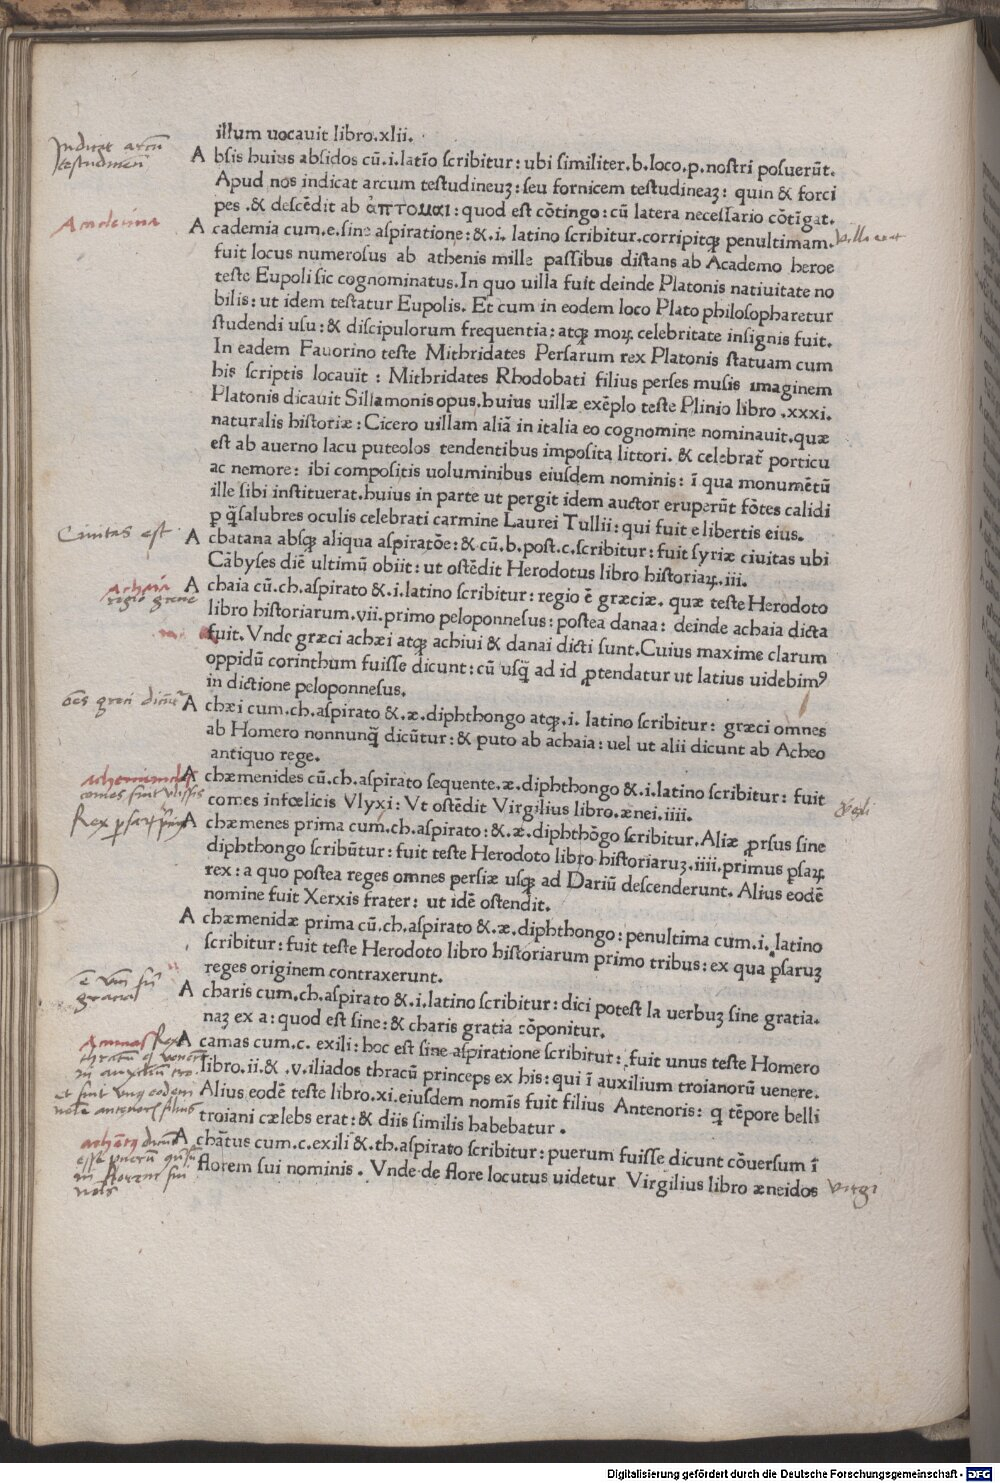 illum uocauit libro.xlii.
Absis huius absidos cū.i.latīo scribitur: ubi similiter.b.loco.p.nostri posuerūt.
Apud nos indicat arcum testudineuʒ: seu fornicem testudineaʒ: quin & forci
pes .& descēdit ab ἁπτομαι: quod est cōtingo: cū latera necessario cōtīgat.
Academia cum.e.sine aspiratione: &.i. latino scribitur.corripitqꝫ penultimam.
fuit locus numerosus ab athenis mille passibus distans ab Academo heroe
teste Eupoli sic cognominatus.In quo uilla fuit deinde Platonis natiuitate no
bilis: ut idem testatur Eupolis. Et cum in eodem loco Plato philosopharetur
studendi usu: & discipulorum frequentia: atqꝫ moꝝ celebritate insignis fuit.
In eadem Fauorino teste Mithridates Persarum rex Platonis statuam cum
his scriptis locauit : Mithridates Rhodobati filius perses musis imaginem
Platonis dicauit Sillamonis opus.huius uillæ exēplo teste Plinio libro .xxxi.
naturalis historiæ: Cicero uillam aliā in italia eo cognomine nominauit.quæ
est ab auerno lacu puteolos tendentibus imposita littori. & celebrat̄ porticu
ac nemore: ibi compositis uoluminibus eiusdem nominis: ī qua monumētū
ille sibi instituerat.huius in parte ut pergit idem auctor eruperūt fōtes calidi
p q̄salubres oculis celebrati carmine Laurei Tullii: qui fuit e libertis eius.
Civitas est
Acbatana absqꝫ aliqua aspiratōe: & cū.b.post.c.scribitur: fuit syriæ ciuitas ubi
Cābyses diē ultimū obiit: ut ostēdit Herodotus libro historiaꝝ.iii.
achaia
regio grecie
Achaia cū.ch.aspirato &.i.latino scribitur: regio ē græciæ. quæ teste Herodoto
libro historiarum.vii.primo peloponnesus: postea danaa: deinde achaia dicta
fuit. Vnde græci achæi atqꝫ achiui & danai dicti sunt.Cuius maxime clarum
oppidū corinthum fuisse dicunt: cū usq̄ ad id ꝓtendatur ut latius uidebimꝰ
in dictione peloponnesus.
Achæi cum.ch.aspirato &.æ.diphthongo atqꝫ.i. latino scribitur: græci omnes
ab Homero nonnunq̄ dicūtur: & puto ab achaia: uel ut alii dicunt ab Acheo
antiquo rege.
Achæmenides cū.ch.aspirato sequente.æ.diphthongo &.i.latino scribitur: fuit
comes infœlicis Vlyxi: Vt ostēdit Virgilius libro.ænei.iiii.
Achæmenes prima cum.ch.aspirato: &.æ.diphthōgo scribitur. Aliæ ꝓrsus sine
diphthongo scribūtur: fuit teste Herodoto libro historiaruʒ.iiii.primus ꝑsaꝝ
rex: a quo postea reges omnes persiæ usqꝫ ad Dariū descenderunt. Alius eodē
nomine fuit Xerxis frater: ut idē ostendit.
Achæmenidæ prima cū.ch.aspirato &.æ.diphthongo: penultima cum.i. latino
scribitur: fuit teste Herodoto libro historiarum primo tribus: ex qua ꝑsaruʒ
reges originem contraxerunt.
Acharis cum.ch.aspirato &.i.latino scribitur: dici potest la uerbuʒ sine gratia.
naʒ ex a: quod est sine: & charis gratia cōponitur.
Acamas cum.c. exili: hoc est sine aspiratione scribitur: fuit unus teste Homero
libro.ii.& .v.iliados thracū princeps ex his: qui ī auxilium troianorū uenere.
Alius eodē teste libro.xi.eiusdem nomīs fuit filius Antenoris: q tēpore belli
troiani cælebs erat: & diis similis habebatur .
Achātus cum.c.exili &.th.aspirato scribitur: puerum fuisse dicunt cōuersum ī
florem sui nominis . Vnde de flore locutus uidetur Virgilius libro æneidos
Virgi
Digitalisierung gefördert durch die Deutsche Forschungsgemeinschaft - DFG